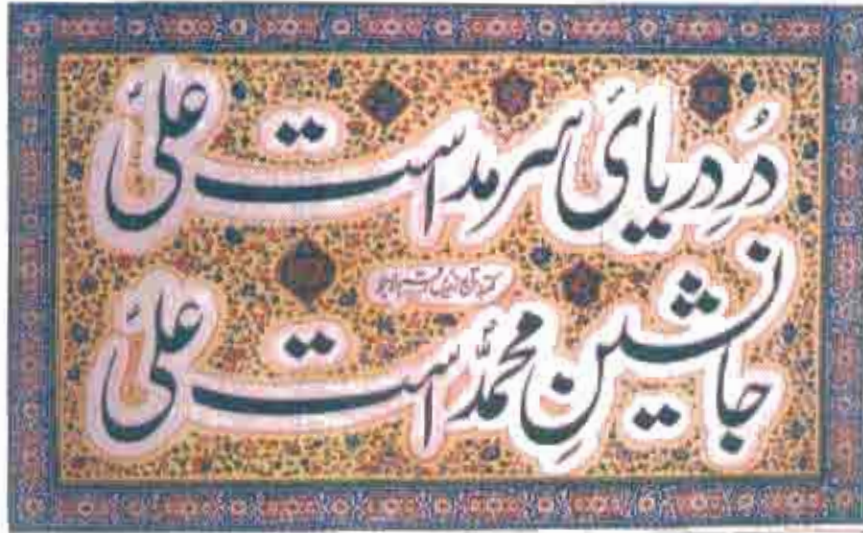 دُرِ دریائ سرمد است علی
جانشینِ محمدؐ است علی